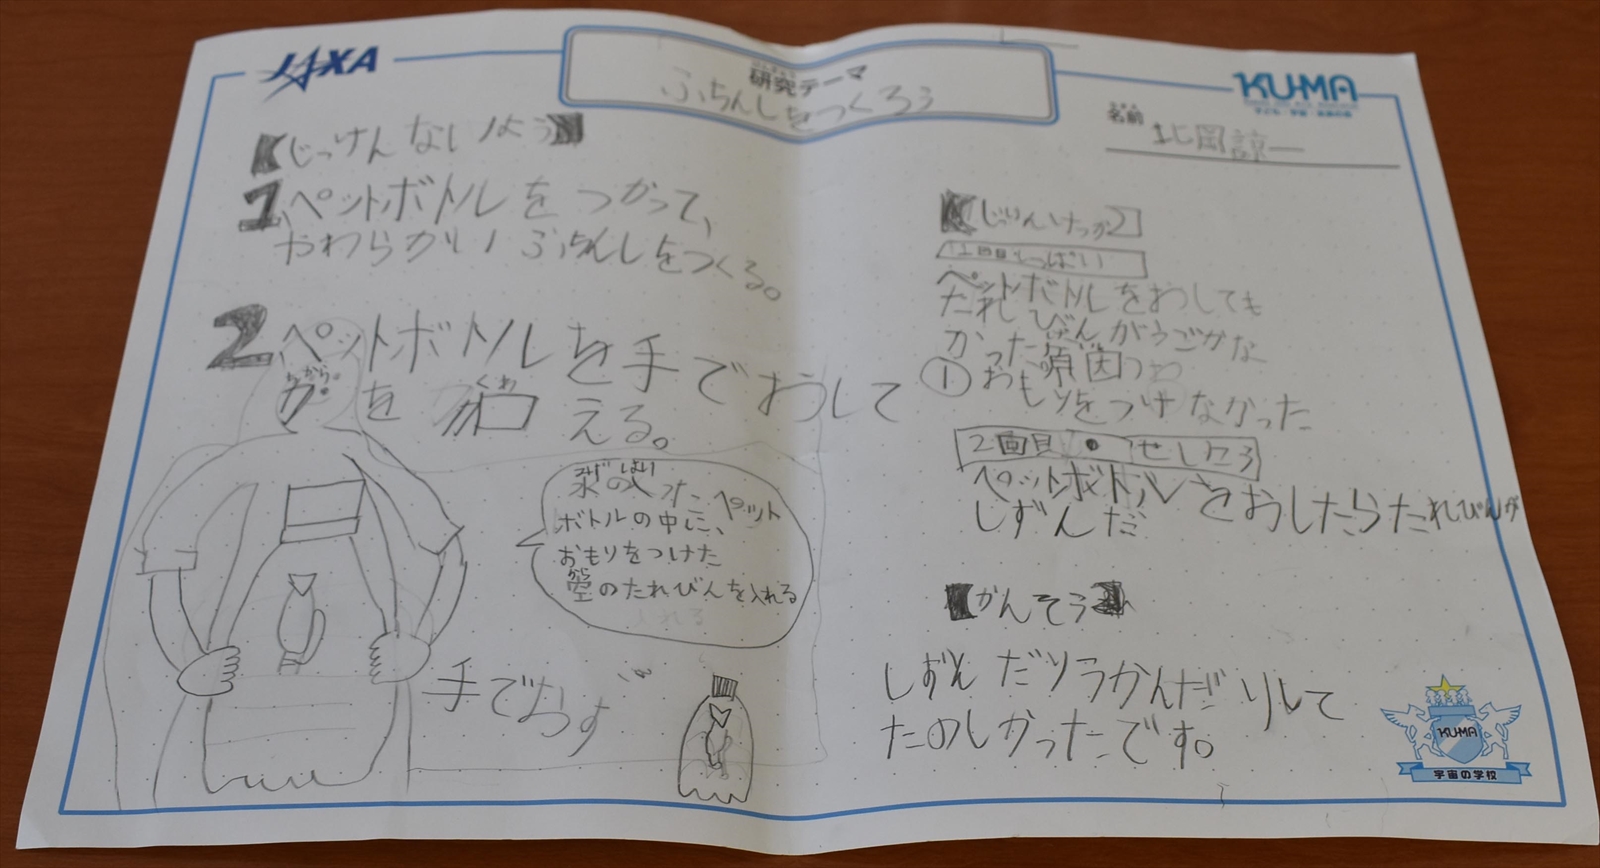 JAXA
研究テーマ
ふちんしをつくろう
KU-MA
名前 北岡諒一
【じっけんないよう】
1 ペットボトルをつかって、
やわらかい ふちんしをつくる。
2 ペットボトルを手でおして
ちから
力を加える。
くわ
水の入った ペット
ボトルの中に、
おもりをつけた
から
空のたれびんを入れる
入れる
手でおす
【じっけんけっか】
1回目しっぱい
ペットボトルをおしても
たれびんがうごかな
かった原因は
①おもりをつけなかった
2回目 せいこう
ペットボトルをおしたらたれびんが
しずんだ
【かんそう】
しずんだりうかんだりして
たのしかったです。
KU-MA
宇宙の学校